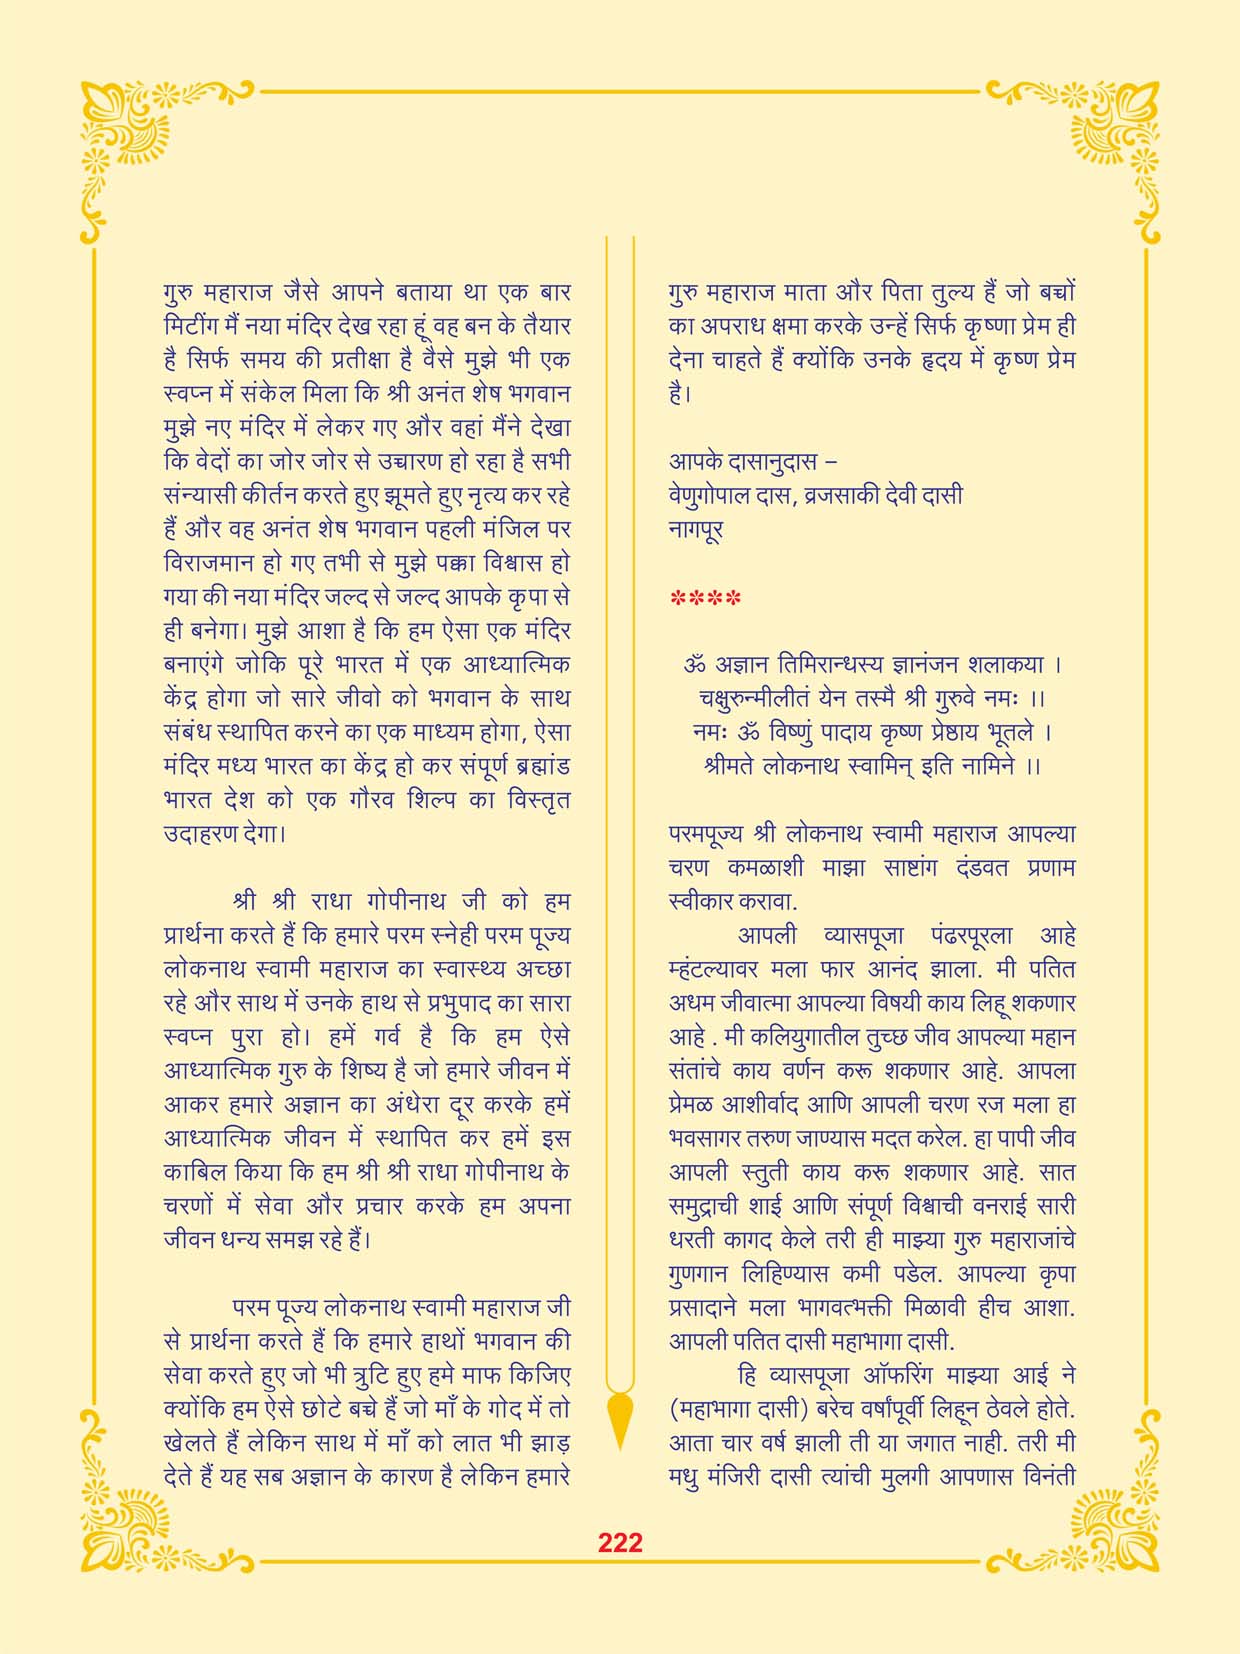 गुरु महाराज जैसे आपने बताया था एक बार
मिटींग मैं नया मंदिर देख रहा हूं वह बन के तैयार
है सिर्फ समय की प्रतीक्षा है वैसे मुझे भी एक
स्वप्न में संकेल मिला कि श्री अनंत शेष भगवान
मुझे नए मंदिर में लेकर गए और वहां मैंने देखा
कि वेदों का जोर जोर से उच्चारण हो रहा है सभी
संन्यासी कीर्तन करते हुए झूमते हुए नृत्य कर रहे
हैं और वह अनंत शेष भगवान पहली मंजिल पर
विराजमान हो गए तभी से मुझे पक्का विश्वास हो
गया की नया मंदिर जल्द से जल्द आपके कृपा से
ही बनेगा। मुझे आशा है कि हम ऐसा एक मंदिर
बनाएंगे जोकि पूरे भारत में एक आध्यात्मिक
केंद्र होगा जो सारे जीवो को भगवान के साथ
संबंध स्थापित करने का एक माध्यम होगा, ऐसा
मंदिर मध्य भारत का केंद्र हो कर संपूर्ण ब्रह्मांड
भारत देश को एक गौरव शिल्प का विस्तृत
उदाहरण देगा।
श्री श्री राधा गोपीनाथ जी को हम
प्रार्थना करते हैं कि हमारे परम स्नेही परम पूज्य
लोकनाथ स्वामी महाराज का स्वास्थ्य अच्छा
रहे और साथ में उनके हाथ से प्रभुपाद का सारा
स्वप्न पुरा हो। हमें गर्व है कि हम ऐसे
आध्यात्मिक गुरु के शिष्य है जो हमारे जीवन में
आकर हमारे अज्ञान का अंधेरा दूर करके हमें
आध्यात्मिक जीवन में स्थापित कर हमें इस
काबिल किया कि हम श्री श्री राधा गोपीनाथ के
चरणों में सेवा और प्रचार करके हम अपना
जीवन धन्य समझ रहे हैं।
परम पूज्य लोकनाथ स्वामी महाराज जी
से प्रार्थना करते हैं कि हमारे हाथों भगवान की
सेवा करते हुए जो भी त्रुटि हुए हमे माफ किजिए
क्योंकि हम ऐसे छोटे बच्चे हैं जो माँ के गोद में तो
खेलते हैं लेकिन साथ में माँ को लात भी झाड़
देते हैं यह सब अज्ञान के कारण है लेकिन हमारे
गुरु महाराज माता और पिता तुल्य हैं जो बच्चों
का अपराध क्षमा करके उन्हें सिर्फ कृष्णा प्रेम ही
देना चाहते हैं क्योंकि उनके हृदय में कृष्ण प्रेम
है।
आपके दासानुदास –
वेणुगोपाल दास, व्रजसाकी देवी दासी
नागपूर
****
ॐ अज्ञान तिमिरान्धस्य ज्ञानंजन शलाकया ।
चक्षुरुन्मीलीतं येन तस्मै श्री गुरुवे नमः ।।
नमः ॐ विष्णुं पादाय कृष्ण प्रेष्ठाय भूतले ।
श्रीमते लोकनाथ स्वामिन् इति नामिने ।।
परमपूज्य श्री लोकनाथ स्वामी महाराज आपल्या
चरण कमळाशी माझा साष्टांग दंडवत प्रणाम
स्वीकार करावा.
आपली व्यासपूजा पंढरपूरला आहे
म्हंटल्यावर मला फार आनंद झाला. मी पतित
अधम जीवात्मा आपल्या विषयी काय लिहू शकणार
आहे . मी कलियुगातील तुच्छ जीव आपल्या महान
संतांचे काय वर्णन करू शकणार आहे. आपला
प्रेमळ आशीर्वाद आणि आपली चरण रज मला हा
भवसागर तरुण जाण्यास मदत करेल. हा पापी जीव
आपली स्तुती काय करू शकणार आहे. सात
समुद्राची शाई आणि संपूर्ण विश्वाची वनराई सारी
धरती कागद केले तरी ही माझ्या गुरु महाराजांचे
गुणगान लिहिण्यास कमी पडेल. आपल्या कृपा
प्रसादाने मला भागवत्भक्ती मिळावी हीच आशा.
आपली पतित दासी महाभागा दासी.
हि व्यासपूजा ऑफरिंग माझ्या आई ने
(महाभागा दासी) बरेच वर्षांपूर्वी लिहून ठेवले होते.
आता चार वर्ष झाली ती या जगात नाही. तरी मी
मधु मंजिरी दासी त्यांची मुलगी आपणास विनंती
222